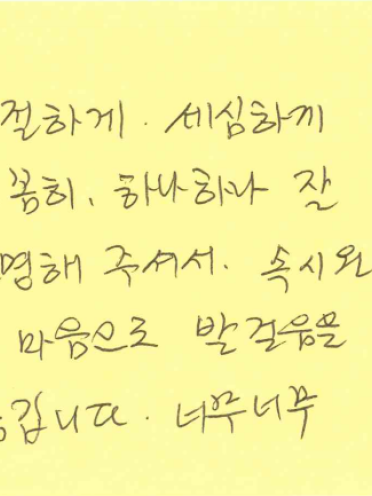 절하게. 세심하게
꼼히. 하나하나 잘
명해 주셔서. 속시원
마음으로 발걸음을
깁니다. 너무너무